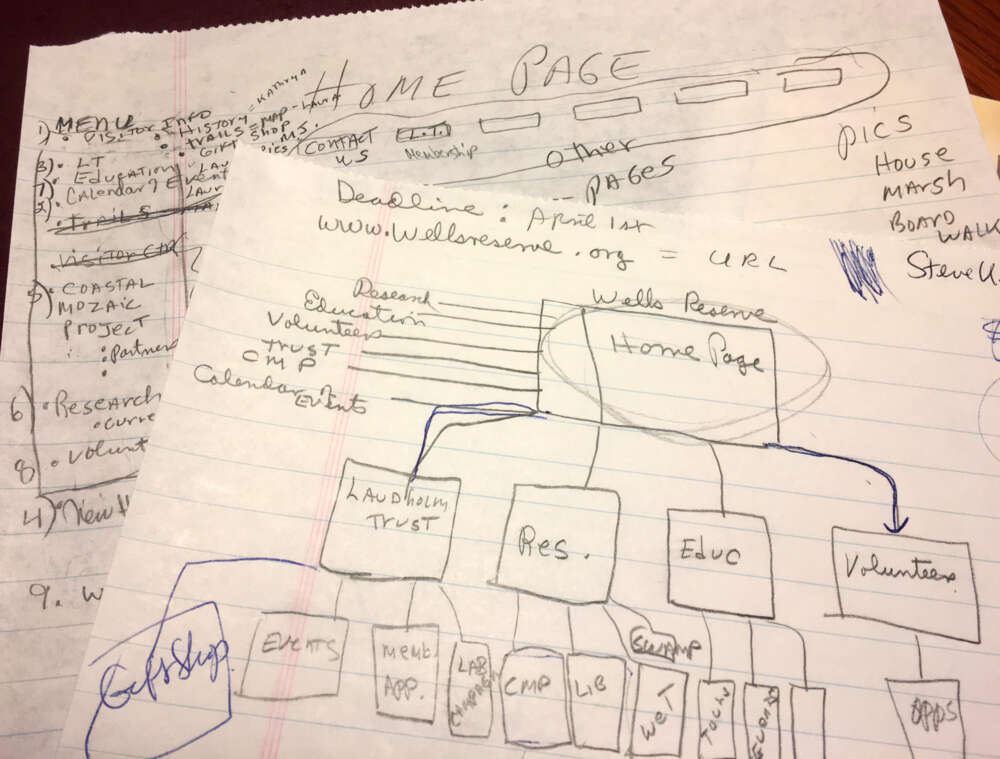 HOME PAGE
1) MENU
VISITOR INFO
• HISTORY = KATHRYN
• TRAILS = MAP - LAURA
• GIFT SHOP
PICS M.S.
CONTACT
US
L.T.
Membership
other
PAGES
3) • LT
• EDUCATION
• CALENDAR ? EVENT
• TRAILS
VISITOR CTR
5) • COASTAL
MOZAIC
PROJECT
• Partner
6) • RESEARCH
• CURRE
8 • VOLUNT
4) • New
9. W
PICS
HOUSE
MARSH
BOARD
WALK
Steve
Deadline : April 1st
www.Wellsreserve.org = URL
Wells Reserve
Home Page
Research
Education
Volunteers
TRUST
CMP
Calendar
EVENTS
LAUDHOLM
TRUST
Res.
EDUC
Volunteers
Gift Shop
EVENTS
MEMB.
APP.
LAB
CAMPAGN
CMP
LIB
SWAMP
WET
TOURS
APPS